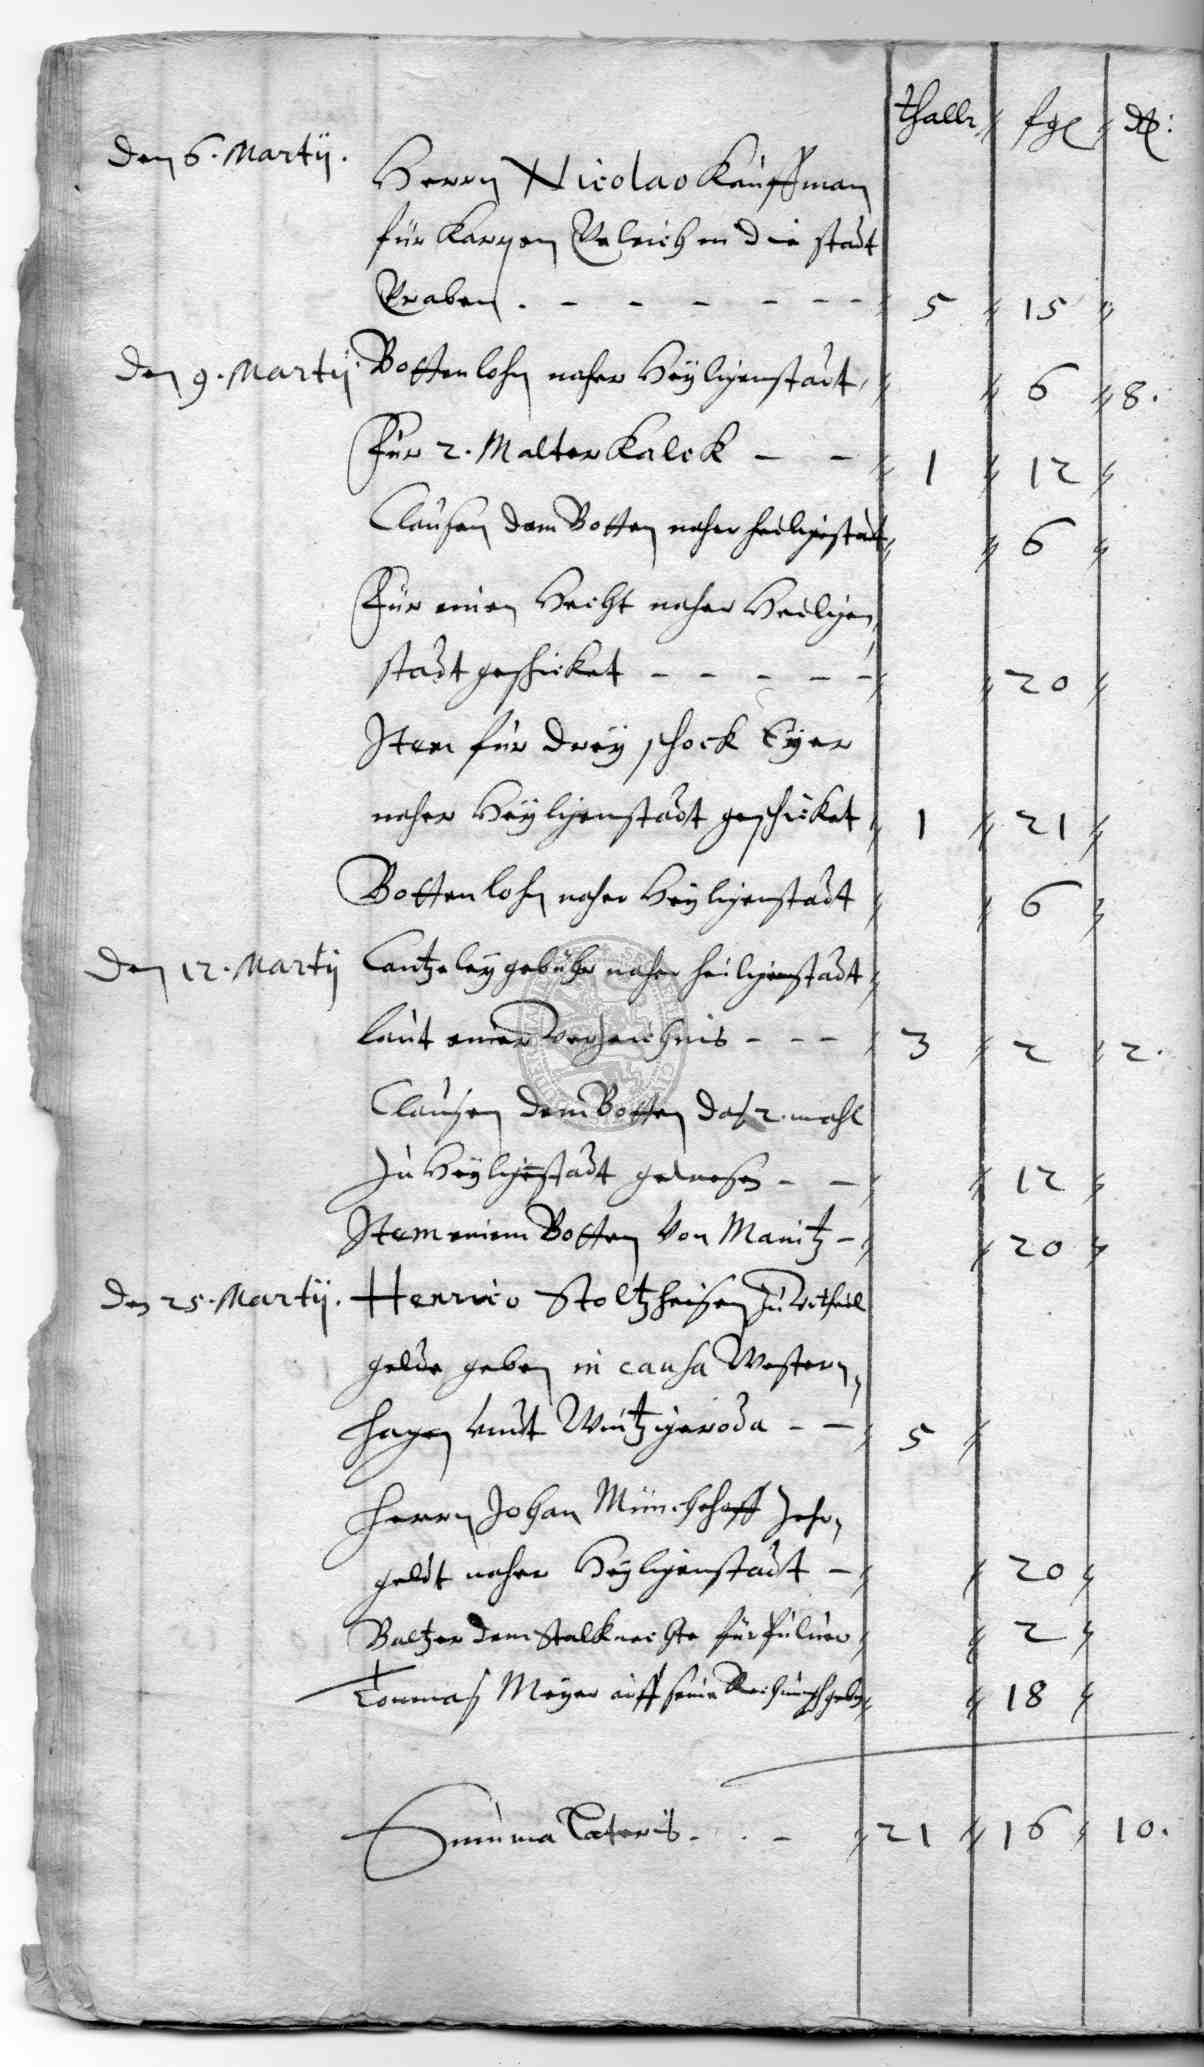 thallr fgl d:
Den 6. Martij. Herrn Nicolao Kauffman
für Karpen in die stadt
5 15
Den 9. Martij Bottenlohn naher Heyligenstadt 6 8.
Für 2. Malter Kalck 1 12
Clausen dem Botten naher heiligestadt 6
Für einen Hecht naher Heiligen
stadt geschicket 20
Item für drey schock Eyer
naher Heyligenstadt geschicket 1 21
Bottenlohn naher Heyligenstadt 6
Den 12. Martij Cantzeley gebühr naher heiligenstadt
laut einer verzeichnis 3 2 2.
Clausen dem Botten das 2. mahl
zu Heyligestadt gewesen 12
Item einem Botten von Maintz 20
Den 25. Martij. Henrico Stoltzheisen zu Vrtheil
gelde geben in causa Western
hagen vndt Wintzigeroda 5
Herrn Johan Münchehoff Zehr
geldt naher Heyligenstadt 20
Baltzer dem Stalknechte für Puluer 2
Tommaß Meyer auff seine Rechnung geben 18
Summa Lateris 21 16 10.